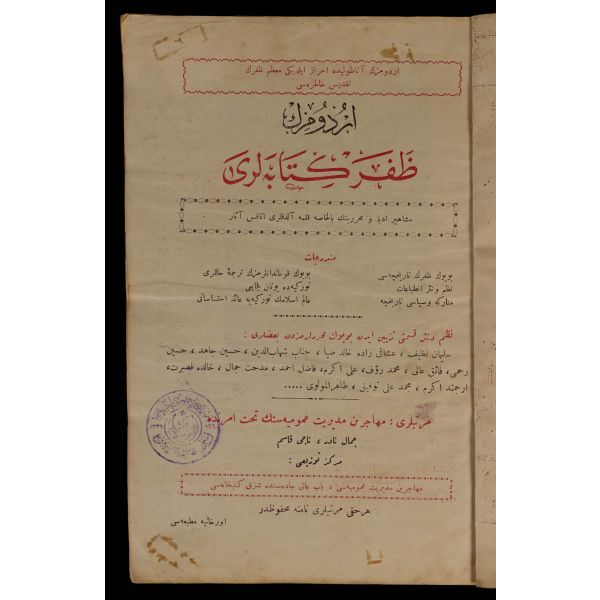 اردومزك آناطولیده احراز ایلدیكی معظم ظفرك
تقدیس خاطره‌سی
اردومزك
ظفر كتابه‌لری
مشاهیر ادبا و محررینك بالخاصه قلمه آلدقلری انفس آثار
مندرجات
بویوك ظفرك تاریخچه‌سی
نظم و نثر انطباعات
متاركه و سیاسی تاریخچه
بویوك قوماندانلرمزك ترجمهٔ حاللری
توركیه‌ده یونان فجایعی
عالم اسلامك توركیه‌یه عائد احتساساتی
نظم و نثر قسمنی تزیین ایدن بویوك محررلرمزدن بعضلری :
سلیمان نظیف ، عشاقی زاده خالد ضیا ، جناب شهاب‌الدین ، حسین جاهد ، حسین
رحمی ، فائق عالی ، محمد رؤف ، علی اكرم ، فاضل احمد ، مدحت جمال ، خالده نصرت ،
ارجمند اكرم ، محمد علی توفیق ، طاهرالمولوی .....
مرتبلری : مهاجرین مدیریت عمومیه‌سنك تحت امرنده
جمال نادر ، ناجی قاسم
مركز توزیعی :
مهاجرین مدیریت عمومیه‌سی ، باب عالی جاده‌سنده شرق كتبخانه‌سی
هر حقی مرتبلری نامنه محفوظدر
اورخانیه مطبعه‌سی